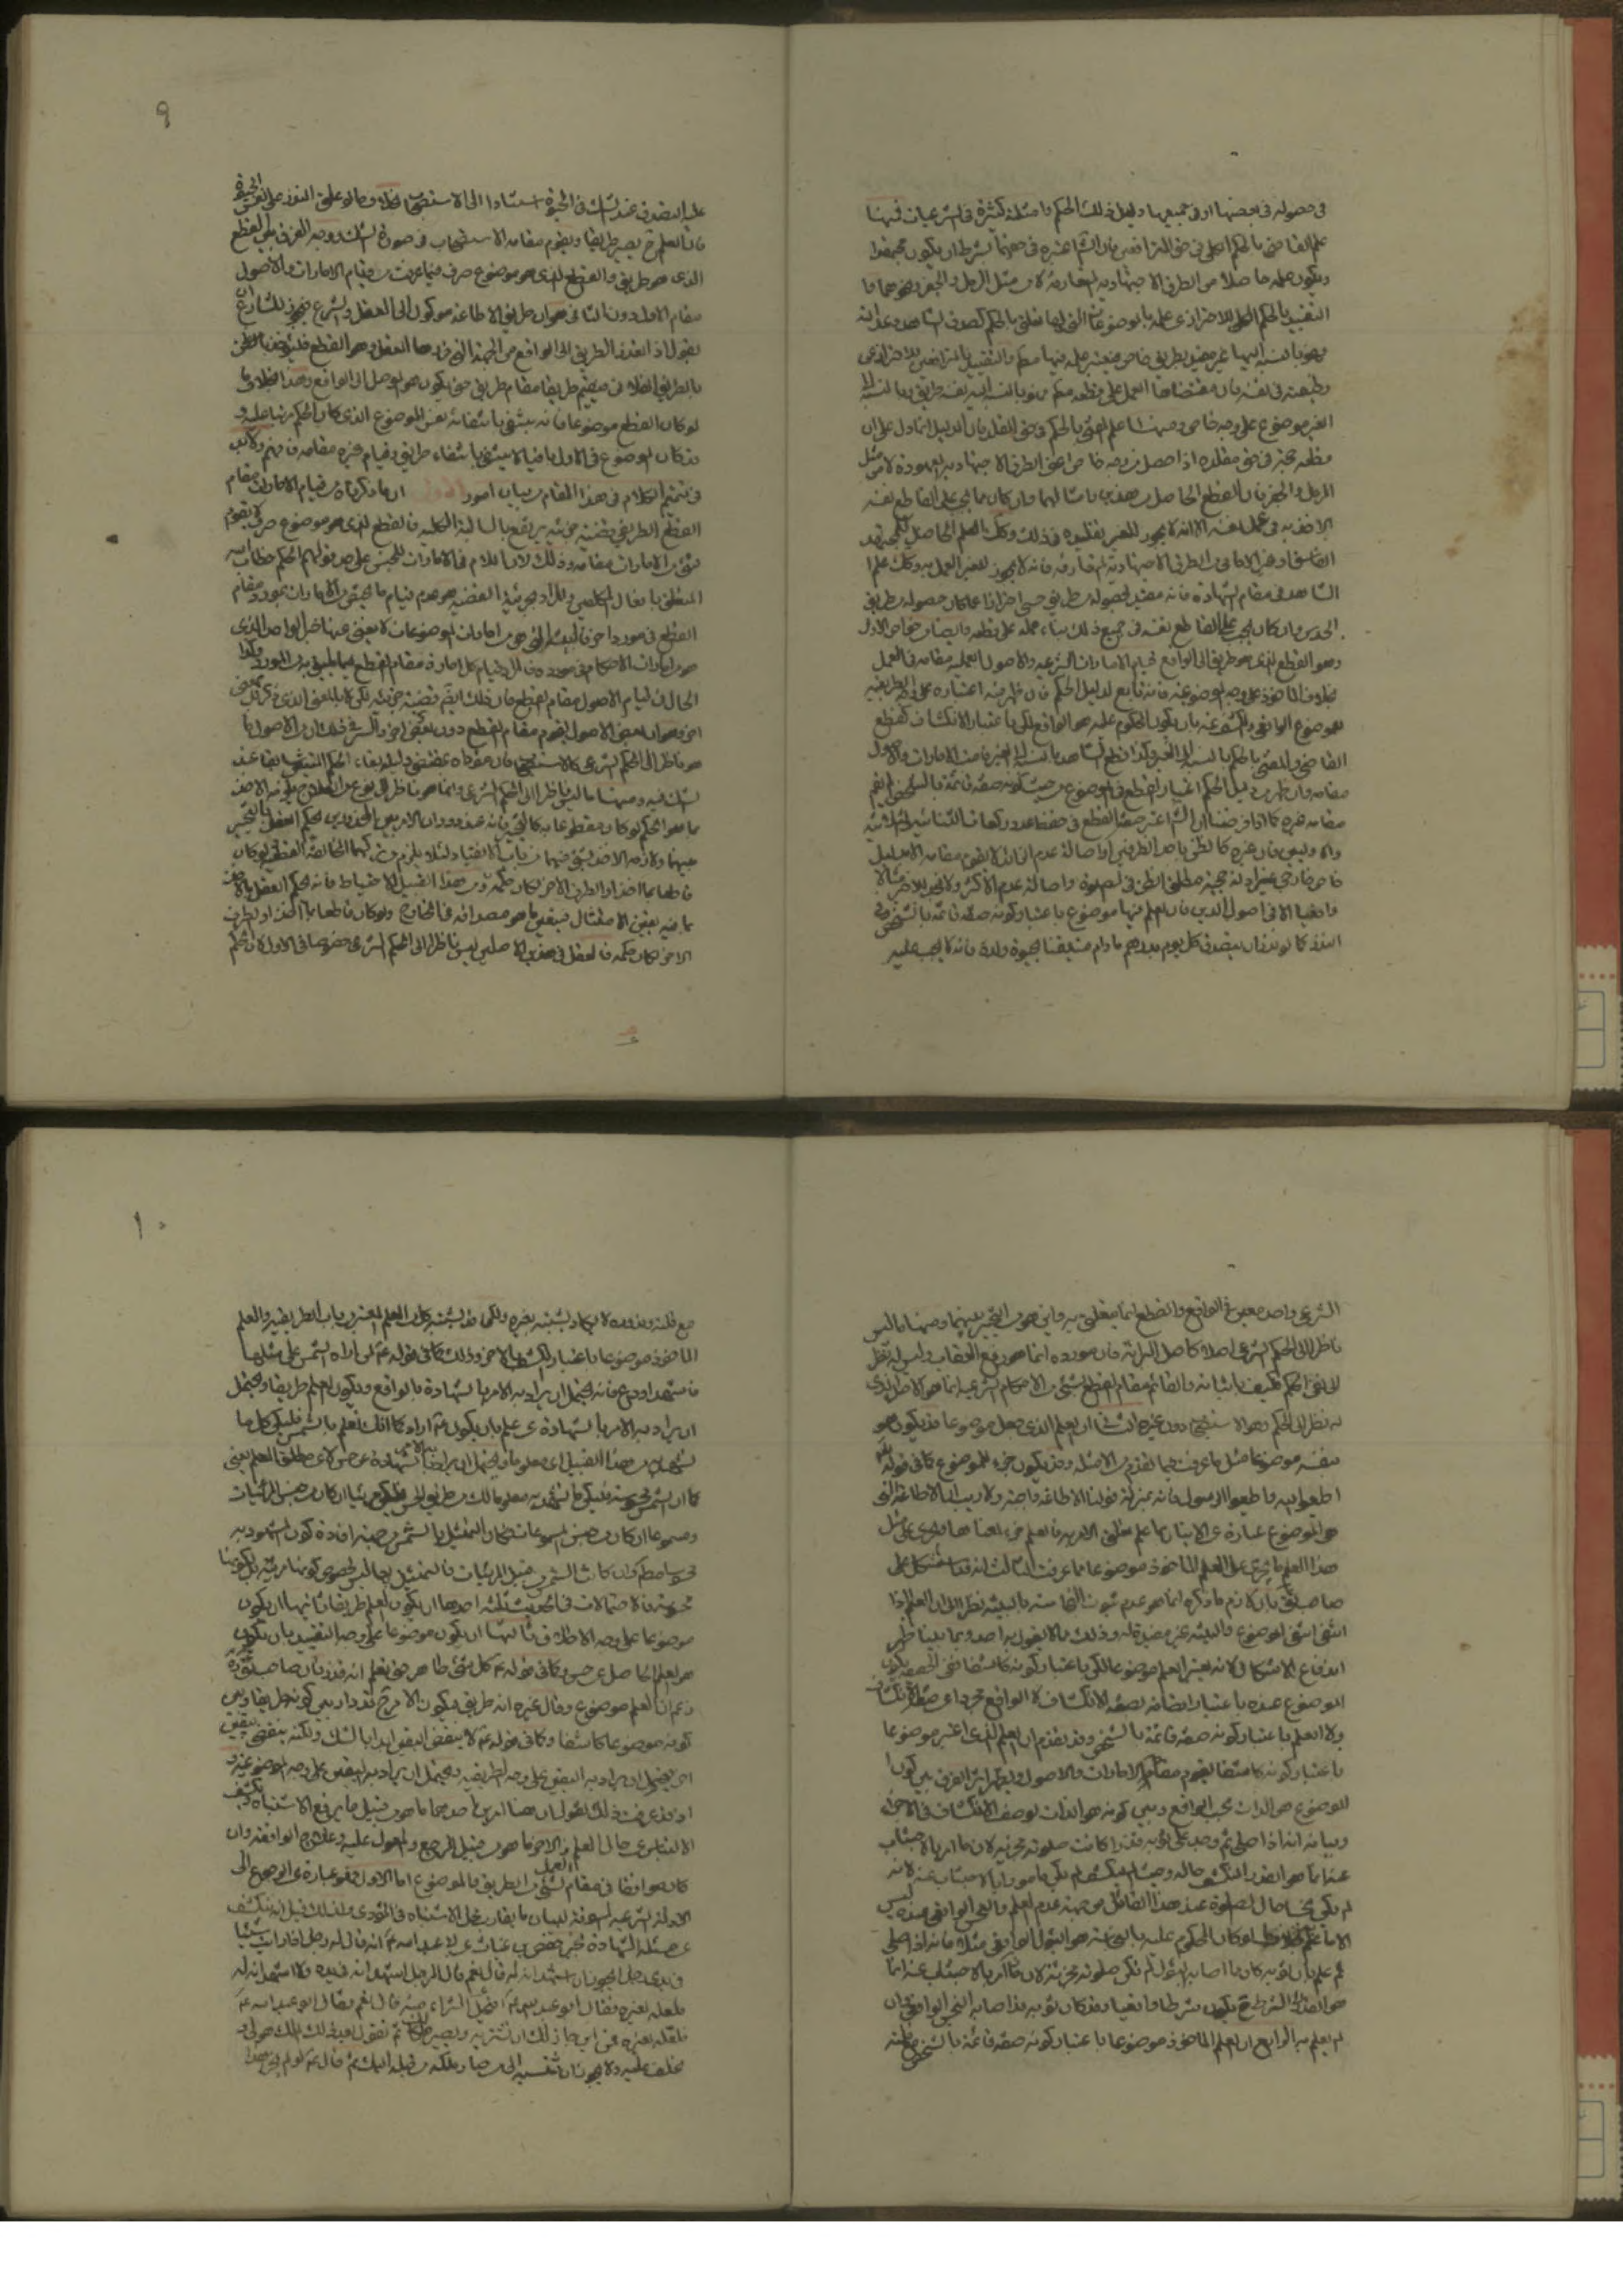 في حصوله في بعضها او في جميعها ودليل ذلك الحكم وامثلة كثيرة في الشرعيات فمنها
علم القاضي بالحكم الكلي في حق المترافعين فان الشارع اعتبره في حقهما بشرط ان يكون مجتهدا
ويكون علمه حاصلا من الطرق الاجتهادية المتعارفة لا من مثل الرمل والجفر ونحوهما
التقييد بالحكم الكلي للاحتراز عن علمه بالموضوعات التي لها تعلق بالحكم كصدق الشاهد وعدالته
فهو بالنسبة اليها غير مقيد بطريق خاص فيعتبر علمه فيها مطلقا والتقييد بالمترافعين للاحتراز عن
وظيفته في نفسه فان مقتضاها العمل على قطعه مطلقا فهو بالنسبة اليه نفسه طريق وبالنسبة الى
الغير موضوع على وجه خاص ومنها علم المفتي بالحكم في حق المقلد فان الدليل انما دل على ان
قطعه معتبر في حق مقلده اذا حصل من وجه خاص اعني الطرق الاجتهادية المعهودة لا من مثل
الرمل والجفر فان القطع الحاصل من هذين وامثالهما وان كان مما يجب على القاطع نفسه
الاخذ به في عمل نفسه الا انه لا يجوز للغير تقليده في ذلك وكذا العلم الحاصل للمجتهد
الفاسق او غير الامامي من الطرق الاجتهادية المتعارفة فانه لا يجوز للغير العمل به وكذا علم
الشاهد في مقام الشهادة فانه مقيد بحصوله من طريق حسي احترازا عما كان حصوله بطريق
الحدس وان كان يجب على القاطع نفسه في جميع ذلك بناء عمله على قطعه وايضا من خواص الاول
وهو القطع الذي هو طريق الى الواقع قيام الامارات الشرعية والاصول العملية مقامه في العمل
بخلاف الماخوذ على وجه الموضوعية فانه تابع لدليل الحكم فان ظهر منه اعتباره على وجه الطريقية
للموضوع الواقعي والكشف عنه بان يكون المحكوم عليه هو الواقع لكن باعتبار الانكشاف كقطع
القاضي والمفتي بالحكم بالنسبة الى الغير وكذا قطع الشاهد بالنسبة الى الغير قامت الامارات والاصول
مقامه وان ظهر من دليل الحكم اعتبار القطع في الموضوع من حيث كونه صفة قائمة بالشخص لم يقم
مقامه غيره كما اذا فرضنا ان الشارع اعتبر صفة القطع في حفظ عدد ركعات الثنائية والثلاثية
والاوليين فان غيره كالظن باحد الطرفين او اصالة عدم الزائد لا يقوم مقامه الا بدليل
خاص خارجي غير ادلة حجية مطلق الظن في الصلوة واصالة عدم الاكثر ولا نجد للاخير مثالا
واقعيا الا في اصول الدين فان العلم فيها موضوع باعتبار كونه صفة قائمة بالشخص وفي
النذر كما لو نذر ان يتصدق كل يوم بدرهم ما دام متيقنا بحيوة ولده فانه لا يجب عليه
٩
عليه التصدق عند الشك في الحيوة استنادا الى الاستصحاب بخلاف ما لو علق النذر على نفس الحيوة
فان العلم ح يصير طريقا ويقوم مقامه الاستصحاب في صورة الشك ووجه الفرق بين القطع
الذي هو طريق والقطع الذي هو موضوع صرف فيما عرفت من قيام الامارات والاصول
مقام الاول دون الثاني هو ان طريق الاطاعة موكول الى العقل والشرع فيجوز للشارع ان
يقول اذا تعذر الطريق الى الواقع من الجهة التي قررها العقل وهو القطع فليؤخذ بالظن
لو كان القطع موضوعا فانه ينتفي بانتفائه نفس الموضوع الذي كان الحكم مرتبا عليه و
قد كان الموضوع في الاول باقيا لا ينتفي بانتفاء طريق وقيام غيره مقامه فافهم ولا بد
في تتميم الكلام في هذا المقام من بيان امور الاول ان ما ذكرناه من قيام الامارات مقام
القطع الطريقي قضية جزئية يرتفع بها السالبة الكلية فالقطع الذي هو موضوع صرف لا يقوم
شيء من الامارات مقامه وذلك لان اللام في الامارات للجنس على حد قولهم الحكم خطاب الله
المتعلق بافعال المكلفين والمراد بجزئية القضية هو عدم قيام ما يختص من الامارات بمورد مقام
القطع في مورد اخر فالبينة التي هي من امارات الموضوعات لا يغني عنها خبر الواحد الذي
هو من امارات الاحكام في مورده فالمراد قيام كل امارة مقام القطع فيما يليق به من المورد وكذا
الحال في قيام الاصول مقام القطع فان ذلك ايضا قضية جزئية لكن لا بالمعنى الذي ذكر بل بمعنى
اخر وهو ان بعض الاصول يقوم مقام القطع دون بعض اخر والسر في ذلك ان من الاصول ما
هو ناظر الى الحكم الشرعي كالاستصحاب فان مفاده بمقتضى دليله بقاء الحكم المتيقن سابقا عند
الشك فيه ومنها ما ليس ناظرا الى الحكم الشرعي وانما هو ناظر الى نوع من العلاج
الاخر لكان حكمه فالعقل في هذين الاصلين ليس ناظرا الى الحكم الشرعي خصوصا في الاول لان الحكم
الشرعي واحد معين في الواقع والقطع انما يتعلق به واين هو من التخيير بينهما ومنها ما ليس
ناظرا الى الحكم الشرعي اصلا كاصل البرائة فان مورده انما هو رفع العقاب وليس له نظر
الى نفي الحكم فكيف باثباته فالقائم مقام القطع بشيء من الاحكام الشرعية انما هو الاصل الذي
له نظر الى الحكم وهو الاستصحاب دون غيره الثاني ان العلم الذي جعل موضوعا قد يكون هو
بنفسه موضوعا مثل ما عرفت فيما تقدم من الامثلة وقد يكون جزء للموضوع كما في قوله تعالى
اطيعوا الله واطيعوا الرسول فانه بمنزلة قولنا الاطاعة واجبة ولا ريب ان الاطاعة التي
هي الموضوع عبارة عن الاتيان بما علم تعلق الامر به فالعلم جزء لمعناها وجرى على مثل
هذا العلم ما يجري على العلم الماخوذ موضوعا مما عرفت الثالث انه قد استشكل على
صاحب ق بان لازم ما ذكره انما هو عدم ثبوت النجاسة بالبينة نظرا الى ان العلم اذا
انتفى انتفى الموضوع والبينة غير مفيدة له وذلك مما لا يقول به احد وبما بينا ظهر
اندفاع الاشكال لانه يعتبر العلم موضوعا لكن باعتبار كونه كاشفا
الموضوع عنده باعتبار اتصافه بصفة الانكشاف لا الواقع مجردا عن صفة الانكشاف
ولا العلم باعتبار كونه صفة قائمة بالشخص وقد تقدم ان العلم الذي اعتبر موضوعا
باعتبار كونه كاشفا يقوم مقامه الامارات والاصول ويظهر اثر الفرق بين كون
الموضوع هو الذات بحسب الواقع وبين كونه هو الذات بوصف الانكشاف في الاجزاء
وبيانه انه اذا صلى ثم وجد على ثوبه قذرا كانت صلوته مجزية لان ما امر بالاجتناب
عنه انما هو القذر المنكشف حاله وحيث لم ينكشف لم يكن مامورا بالاجتناب عنه لانه
لم يكن نجسا حال الصلوة عند هذا القائل من جهة عدم العلم والنجس الواقعي عنده ليس
الا ما علم بخلاف ما لو كان المحكوم عليه بالنجاسة هو البول الواقعي مثلا فانه اذا صلى
ثم علم بان ثوبه كان مما اصابه البول لم تكن صلوته مجزية لان ما امر بالاجتناب عنه انما
هو الشرط ح يكون شرطا واقعيا وقد كان ثوبه قد اصابه النجس الواقعي وان
لم يعلم به الرابع ان العلم الماخوذ موضوعا باعتبار كونه صفة قائمة بالشخص
١٠
مع قلته وندوره لا يكاد يشتبه بغيره ولكن قد يشتبه كل من العلم المعتبر من باب الطريقية والعلم
الماخوذ موضوعا باعتبار الكشف بالاخر وذلك كما في قوله ع لمن اراه الشمس على مثلها
فاشهد او دع فانه يحتمل ان يراد به الامر بالشهادة بالواقع ويكون العلم طريقا ويحتمل
ان يراد به الامر بالشهادة عن علم بان يكون ع اراد كما انك تعلم بالشمس فليكن كل ما
تشهد به من هذا القبيل اي معلوما ويحتمل ان يراد به الامر بالشهادة عن حس لا عن مطلق العلم يعني
كما ان الشمس محسوسة فليكن ما تشهد به معلوما لك من طريق الحس فليكن مرئيا ان كان من جنس المرئيات
ومسموعا ان كان من جنس المسموعات فكان التمثيل بالشمس من جهة افادة كون المشهود به
محسوسا مطلقا وان كانت الشمس من قبيل المرئيات فالتمثيل بها ليس لخصوص كونها مرئية بل لكونها
محسوسة فالاحتمالات في الحديث ثلثة احدها ان يكون العلم طريقا ثانيها ان يكون
موضوعا على وجه الاطلاق ثالثها ان يكون موضوعا على وجه التقييد بان يكون
هو العلم الحاصل عن حس وكما في قوله ع كل شيء طاهر حتى تعلم انه قذر فان صاحب ق
زعم ان العلم موضوع وقال غيره انه طريق فيكون الامر ح مترددا بين كونه طريقا وبين
كونه موضوعا كاشفا وكما في قوله ع لا ينقض اليقين ابدا بالشك ولكنه ينقضه بيقين
اخر يحتمل ان يراد به اليقين على وجه الطريقية ويحتمل ان يراد به اليقين على وجه الموضوعية و
اذ قد عرفت ذلك نقول ان هنا امرين احدهما ما هو من قبيل ما يرفع الاشتباه ويكشف
الالتباس عن حال العلم والاخر ما هو من قبيل المرجع والمعول عليه
كان موافقا في مقام العمل لشيء من الطريق والموضوع اما الاول فهو عبارة عن الرجوع الى
الادلة الشرعية المسوقة لبيان ما يقارب محل الاشتباه في المؤدى ولذلك قيل انه ينكشف
عن مسئلة الشهادة بخبر حفص بن غياث عن ابي عبد الله ع انه قال له رجل اذا رايت شيئا
في يدي رجل ايجوز ان اشهد انه له قال نعم قال الرجل اشهد انه في يده ولا اشهد انه له
فلعله لغيره فقال ابو عبد الله ع افيحل الشراء منه قال نعم فقال ابو عبد الله ع
فلعله لغيره فمن اين جاز لك ان تشتريه ويصير ملكا لك ثم تقول بعد ذلك الملك هو لي و
تحلف عليه ولا يجوز ان تنسبه الى من صار ملكه من قبله اليك ثم قال ع لو لم يجز هذا